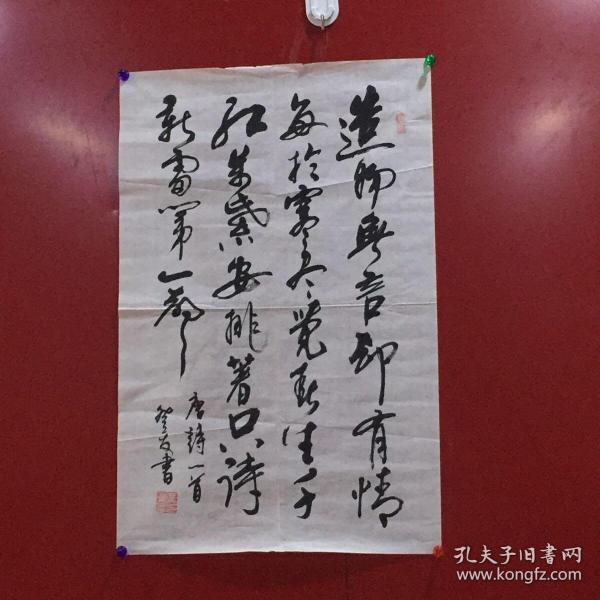 造物無言却有情
每於寒盡覺春生千
紅萬紫安排著只待
新雷第一聲
唐詩一首
書
孔夫子旧書网
www.kongfz.com